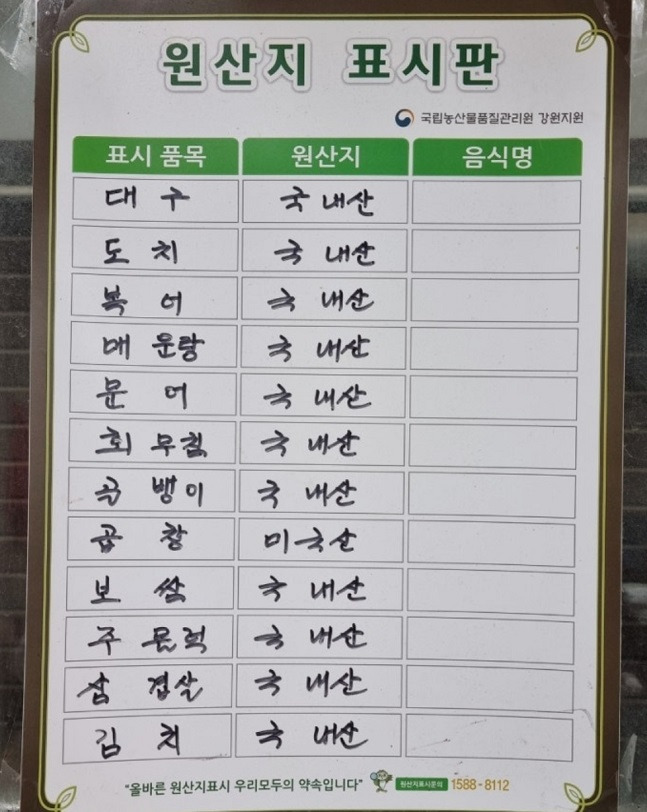 원산지 표시판
국립농산물품질관리원 강원지원
표시 품목 원산지 음식명
대구 국내산
도치 국내산
복어 국내산
매운랑 국내산
문어 국내산
회무침 국내산
골뱅이 국내산
곱창 미국산
보쌈 국내산
주물럭 국내산
삼겹살 국내산
김치 국내산
"올바른 원산지표시 우리모두의 약속입니다" 원산지표시문의 1588-8112